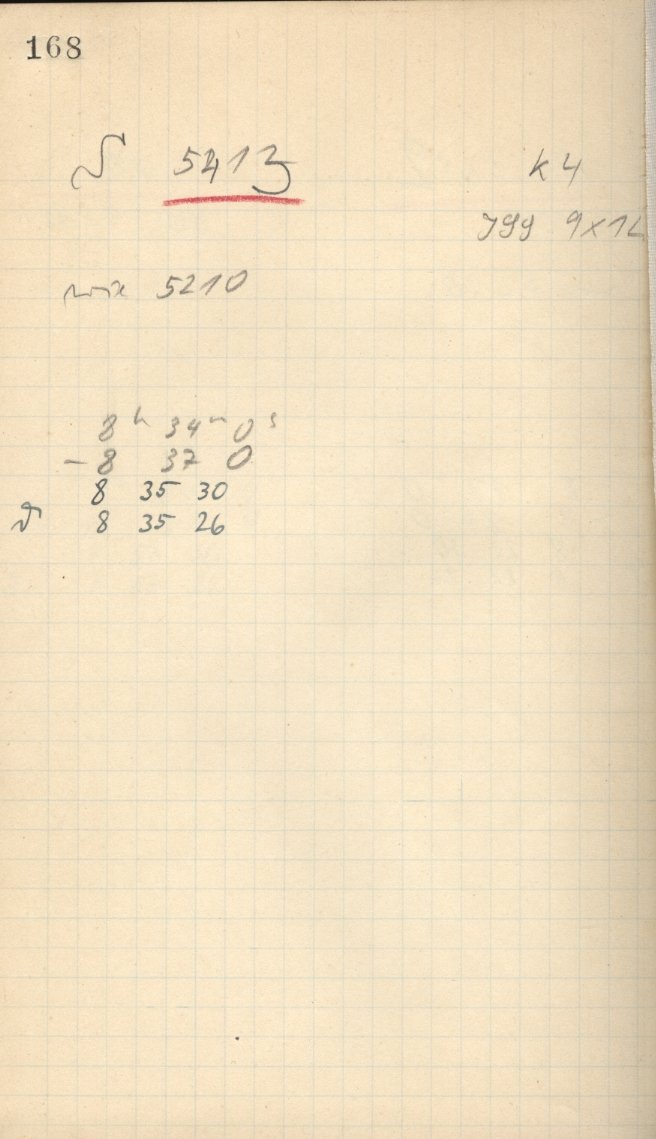 168
5413
K 4
9x12
wie 5210
8h 34m 0s
- 8 37 0
8 35 30
8 35 26